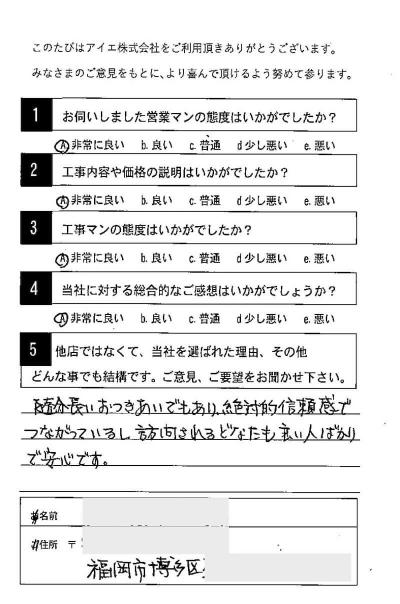 このたびはアイエ株式会社をご利用頂きありがとうございます。
みなさまのご意見をもとに、より喜んで頂けるよう努めて参ります。
1 お伺いしました営業マンの態度はいかがでしたか？
a 非常に良い b. 良い c. 普通 d 少し悪い e. 悪い
2 工事内容や価格の説明はいかがでしたか？
a 非常に良い b. 良い c. 普通 d 少し悪い e. 悪い
3 工事マンの態度はいかがでしたか？
a 非常に良い b. 良い c. 普通 d 少し悪い e. 悪い
4 当社に対する総合的なご感想はいかがでしょうか？
a 非常に良い b. 良い c. 普通 d 少し悪い e. 悪い
5 他店ではなくて、当社を選ばれた理由、その他
どんな事でも結構です。ご意見、ご要望をお聞かせ下さい。
随分長いおつきあいでもあり、絶対的信頼感で
つながっているし 訪問されるどなたも良い人ばかり
で安心です。
お名前
ご住所 〒
福岡市博多区